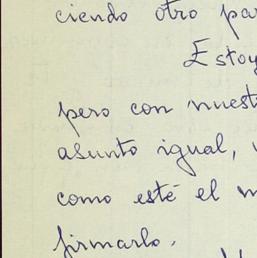 ciendo otro par
Estoy
pero con nuest
asunto igual,
como esté el m
firmarlo.